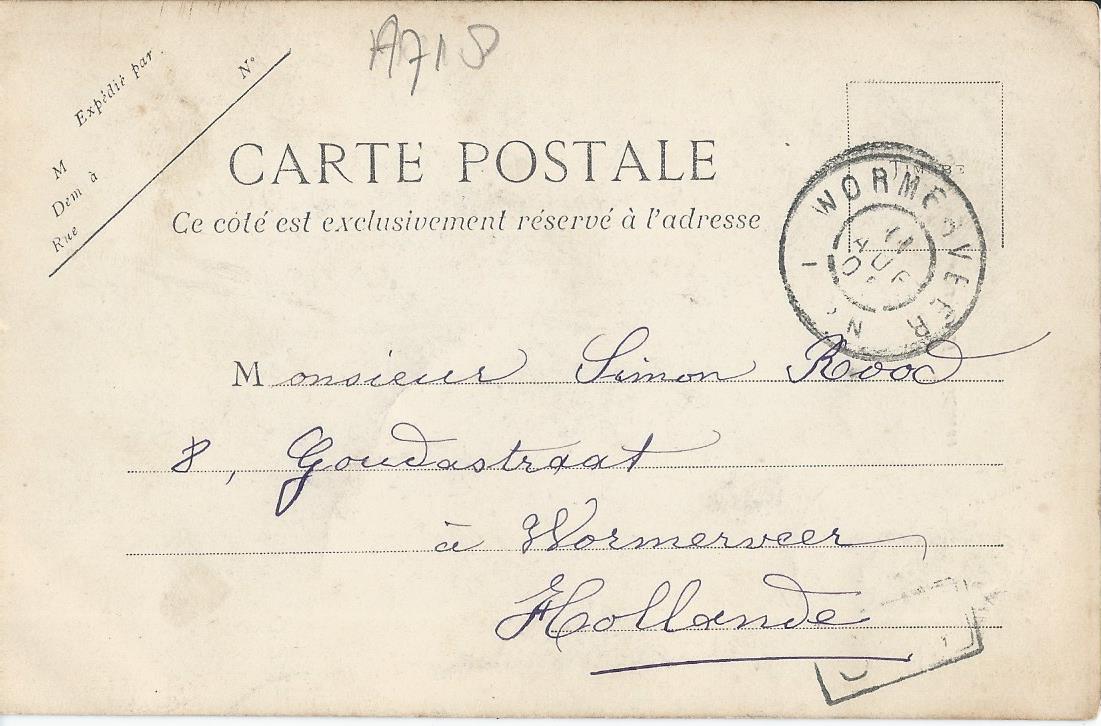 A718
Expédié par
M N°
Dem à
Rue
CARTE POSTALE
Ce côté est exclusivement réservé à l'adresse
WORMERVEER
11
AUG
Monsieur Simon Rood
8, Goudastraat
à Wormerveer
Hollande